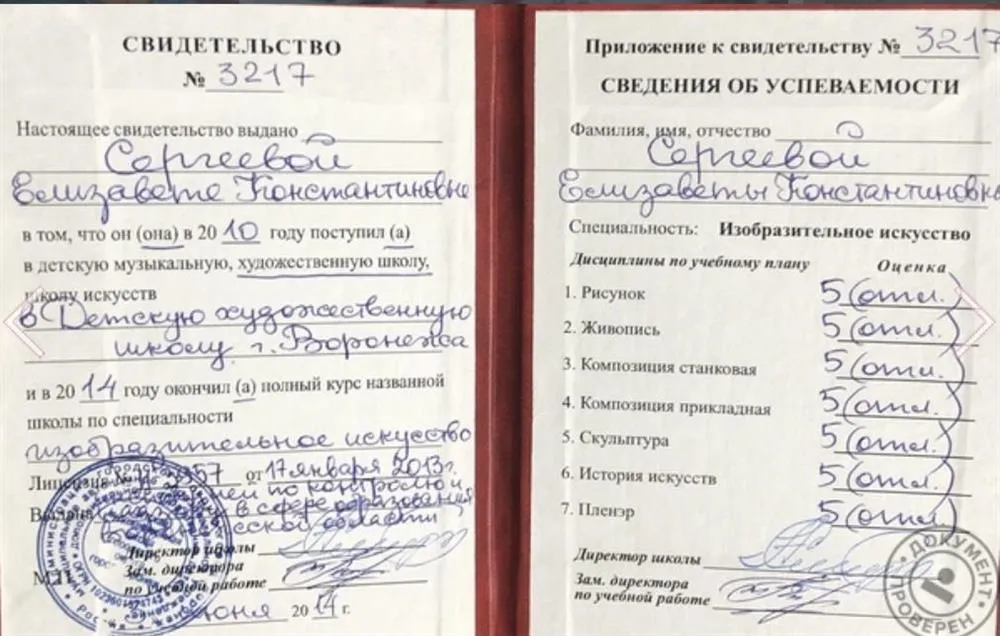 СВИДЕТЕЛЬСТВО
№ 3217
Настоящее свидетельство выдано
Сергеевой
Елизавете Константиновне
в том, что он (она) в 20 10 году поступил (а)
в детскую музыкальную, художественную школу,
школу искусств
в Детскую художественную
школу г. Воронежа
и в 20 14 году окончил (а) полный курс названной
школы по специальности
изобразительное искусство
Лицензия от 17 января 2013г.
Выдана по контролю и
в сфере образования
области
Директор школы
Зам. директора
по учебной работе
М.П.
июня 2014 г.
Приложение к свидетельству № 3217
СВЕДЕНИЯ ОБ УСПЕВАЕМОСТИ
Фамилия, имя, отчество
Сергеевой
Елизаветы Константиновн
Специальность: Изобразительное искусство
Дисциплины по учебному плану Оценка
1. Рисунок 5 (отл.)
2. Живопись 5 (отл.)
3. Композиция станковая 5 (отл.)
4. Композиция прикладная 5 (отл.)
5. Скульптура 5 (отл.)
6. История искусств 5 (отл.)
7. Пленэр 5 (отл.)
Директор школы
Зам. директора
по учебной работе
ДОКУМЕНТ
ПРОВЕРЕН